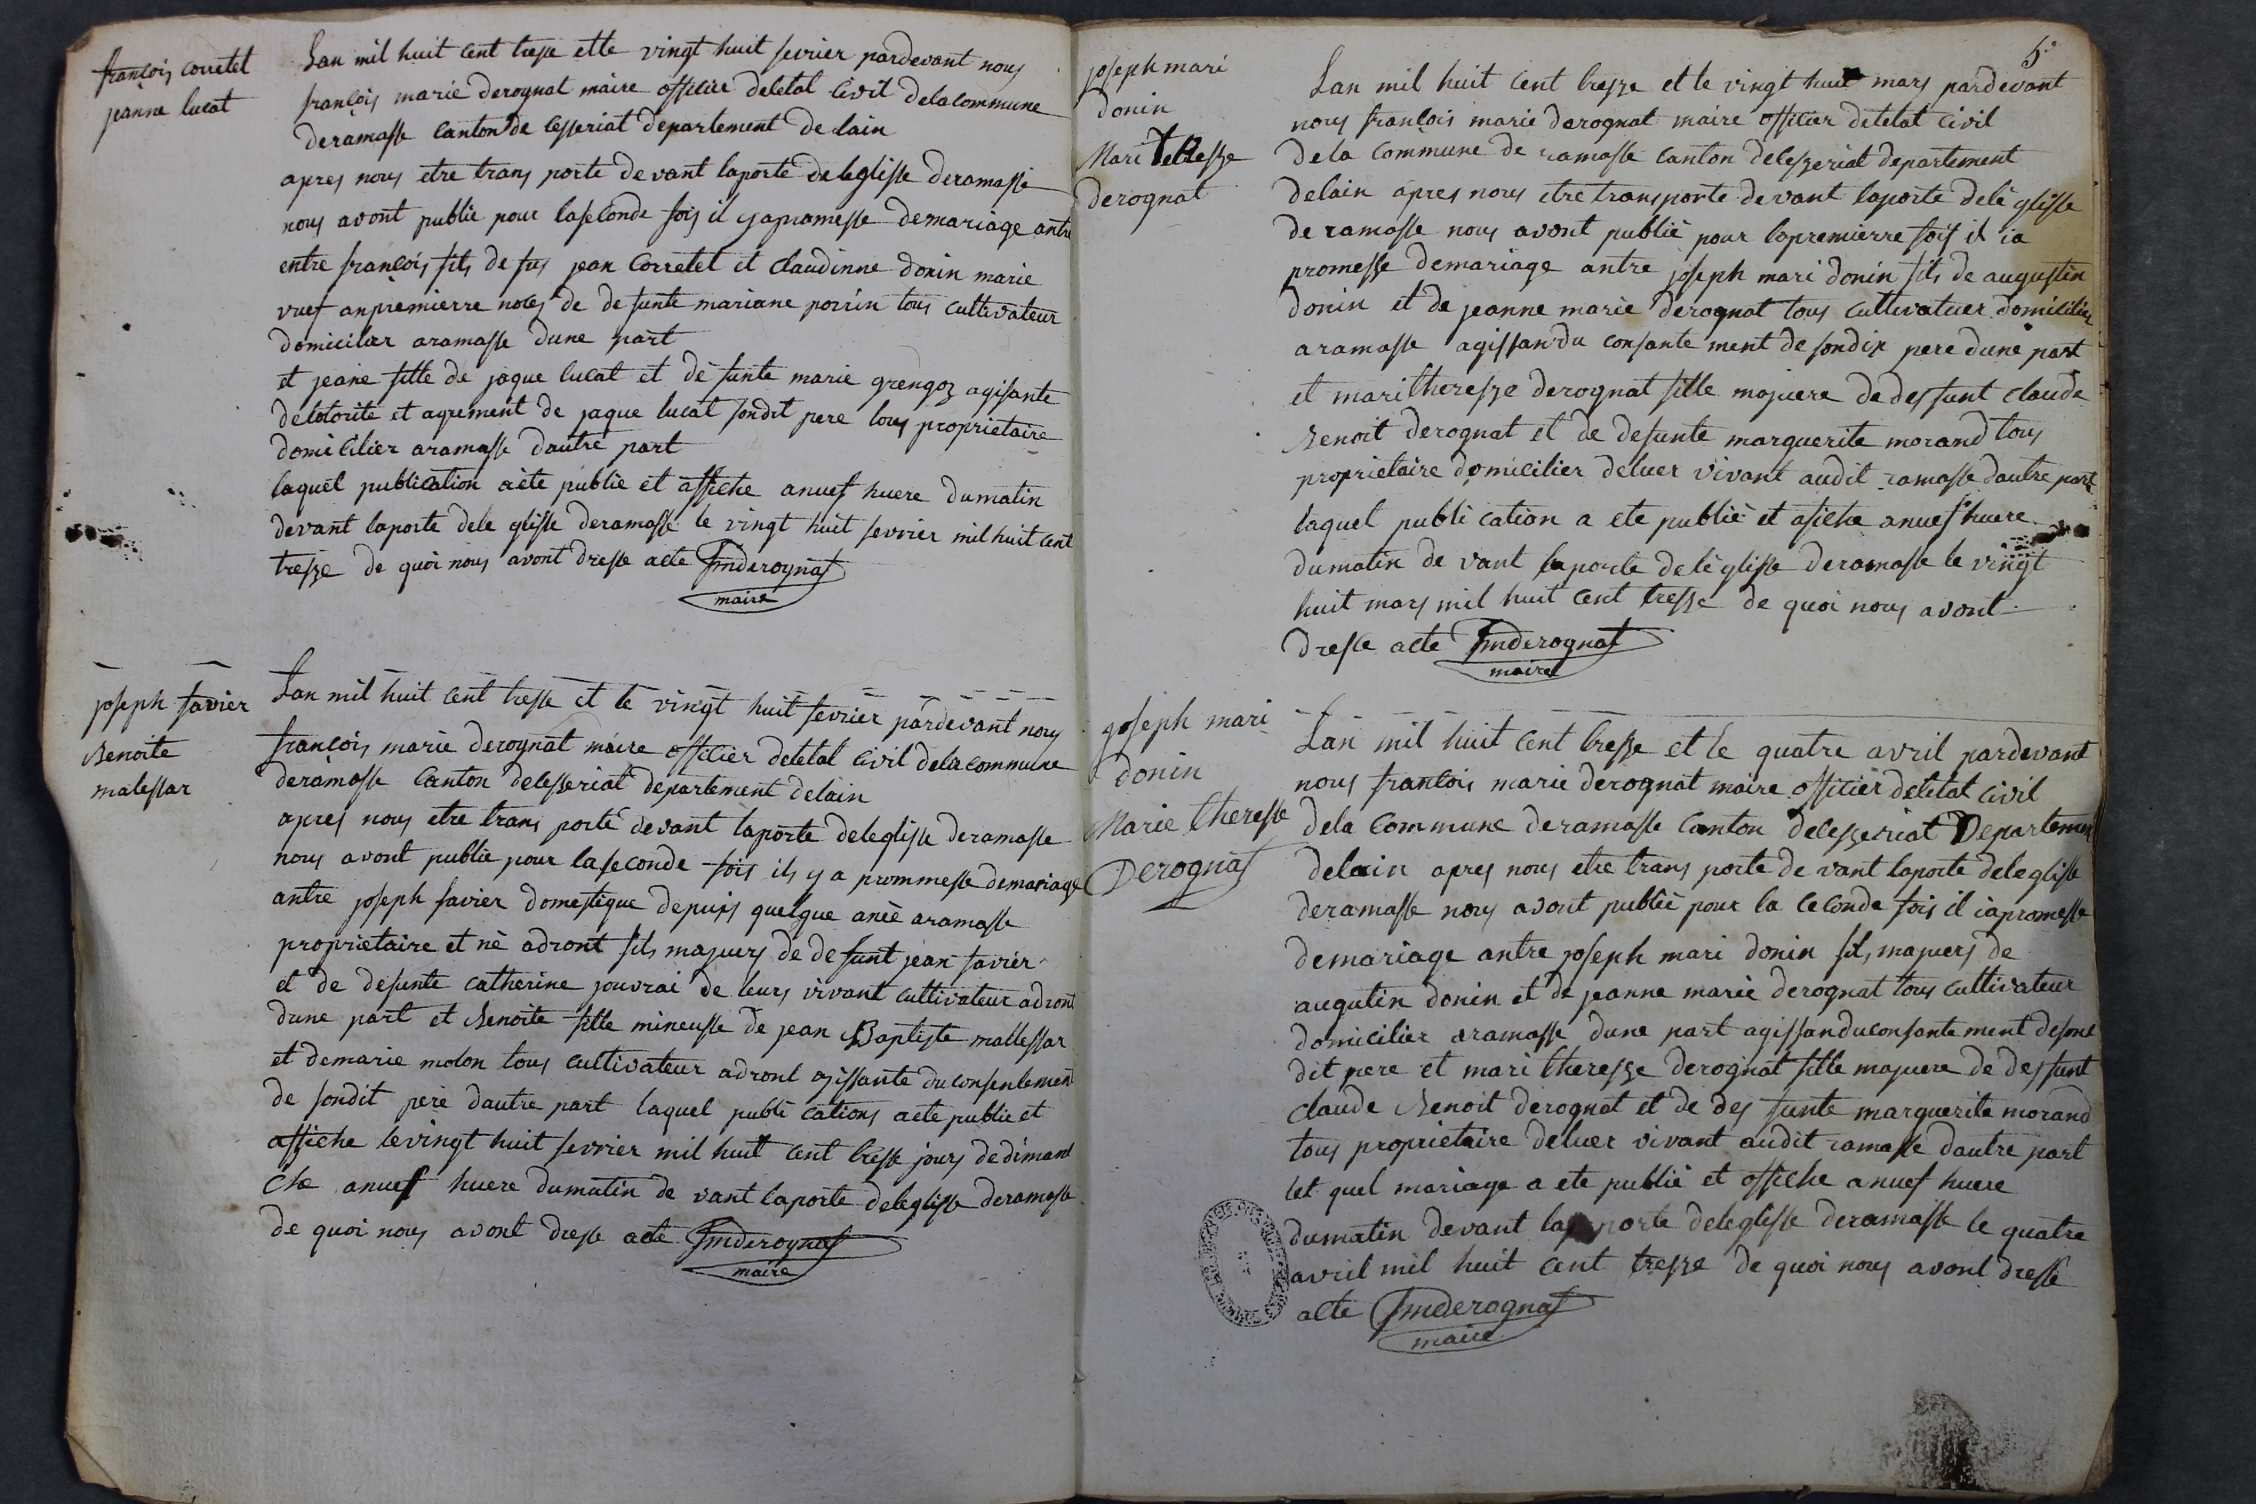 françois corretet
jeanne lucat
Lan mil huit cent tresse et le vingt huit fevrier pardevant nous
françois marie derognat maire officier deletat Civil delacommune
deramasse Canton de Cesseriat departement de lain
apres nous etre trans porte devant laporte deleglisse deramasse
nous avont publie pour laseconde fois il yapromesse demariage antre
entre françois fils de fus jean Corretet et Claudinne donin marie
vuef anpremierre noces de defunte mariane porrin tous cultivateur
domicilier aramasse dune part
et jeane fille de jaque lucat et de funte marie grengoz agisante
delotorite et agrement de jaque lucat sondit pere tous proprietaire
domicilier aramasse dautre part
laquel publication aète publie et affiche anuef huere dumatin
devant laporte dele glisse deramasse le vingt huit fevrier mil huit Cent
tresze de quoi nous avont dresse acte fmderognat
maire
joseph favier
Benoite
malessar
Lan mil huit Cent tresse et le vingt huit fevrier pardevant nous
françois marie derognat maire officier deletat Civil delacommune
deramasse Canton delesseriat departement delain
apres nous etre trans porté devant laporte deleglisse deramasse
nous avont publie pour laseconde fois ils y a prommesse demariage
antre joseph favier domestique depuis quelque anèe aramasse
proprietaire et nè adront fils majuers de defunt jean favier
et de defunte catherine jouvrai de leurs vivant cultivateur adront
dune part et Benoite fille mineusse de jean Baptiste mallessar
et demarie molon tous cultivateur adront agissante duconsentement
de sondit pere dautre part laquel publi cations aete publie et
affiche levingt huit fevrier mil huit Cent tresse jours dediman
che anuef huere dumatin de vant laporte deleglisse deramasse
de quoi nous avont dresse acte fmderognat
maire
5e
joseph mari
donin
Mari tereszse
derognat
Lan mil huit Cent tresze et le vingt huit mars pardevant
nous françois marie derognat maire officier deletat Civil
dela Commune de ramasse Canton deleszeriat departement
delain apres nous etre transporte devant laporte delè glisse
de ramasse nous avont publiè pour lapremierre fois il ia
promesse demariage antre joseph mari donin fils de augustin
donin et de jeanne marie derognat tous cultivatuer domicilier
aramasse agissandu consante ment de sondix pere dune part
et maritheresze derognat fille majuere de desfunt Claude
Benoit derognat et de defunte marguerite morand tous
proprietaire domicilier deluer vivant audit ramasse dautre part
laquel publi cation a ete publiè et afiche anuef huere
dumatin de vant laporte delè glisse deramasse le vingt
huit mars mil huit Cent tressze de quoi nous avont
dresse acte fmderognat
maire
joseph mari
donin
Marie theresse
Derognat
Lan mil huit Cent tresze et le quatre avril pardevant
nous françois marie derognat maire officier deletat Civil
dela Commune deramasse Canton delesszeriat Departement
delain apres nous etre trans porte devant laporte deleglisse
deramasse nous avont publiè pour la Ceconde fois il iapromesse
demariage antre joseph mari donin fils majuers de
augutin donin et de jeanne marie derognat tous cultivateur
domicilier aramasse dune part agissanduconsante ment desont
dit pere et mari theresze derognat fille majuere de desfunt
Claude Benoit derognat et de des funte marguerite morand
tous proprietaire deluer vivant audit ramasse dautre part
let quel mariage a ete publiè et affiche anuef huere
dumatin devant la porte deleglisse deramasse le quatre
avril mil huit Cent tresze de quoi nous avont dresse
acte fmderognat
maire